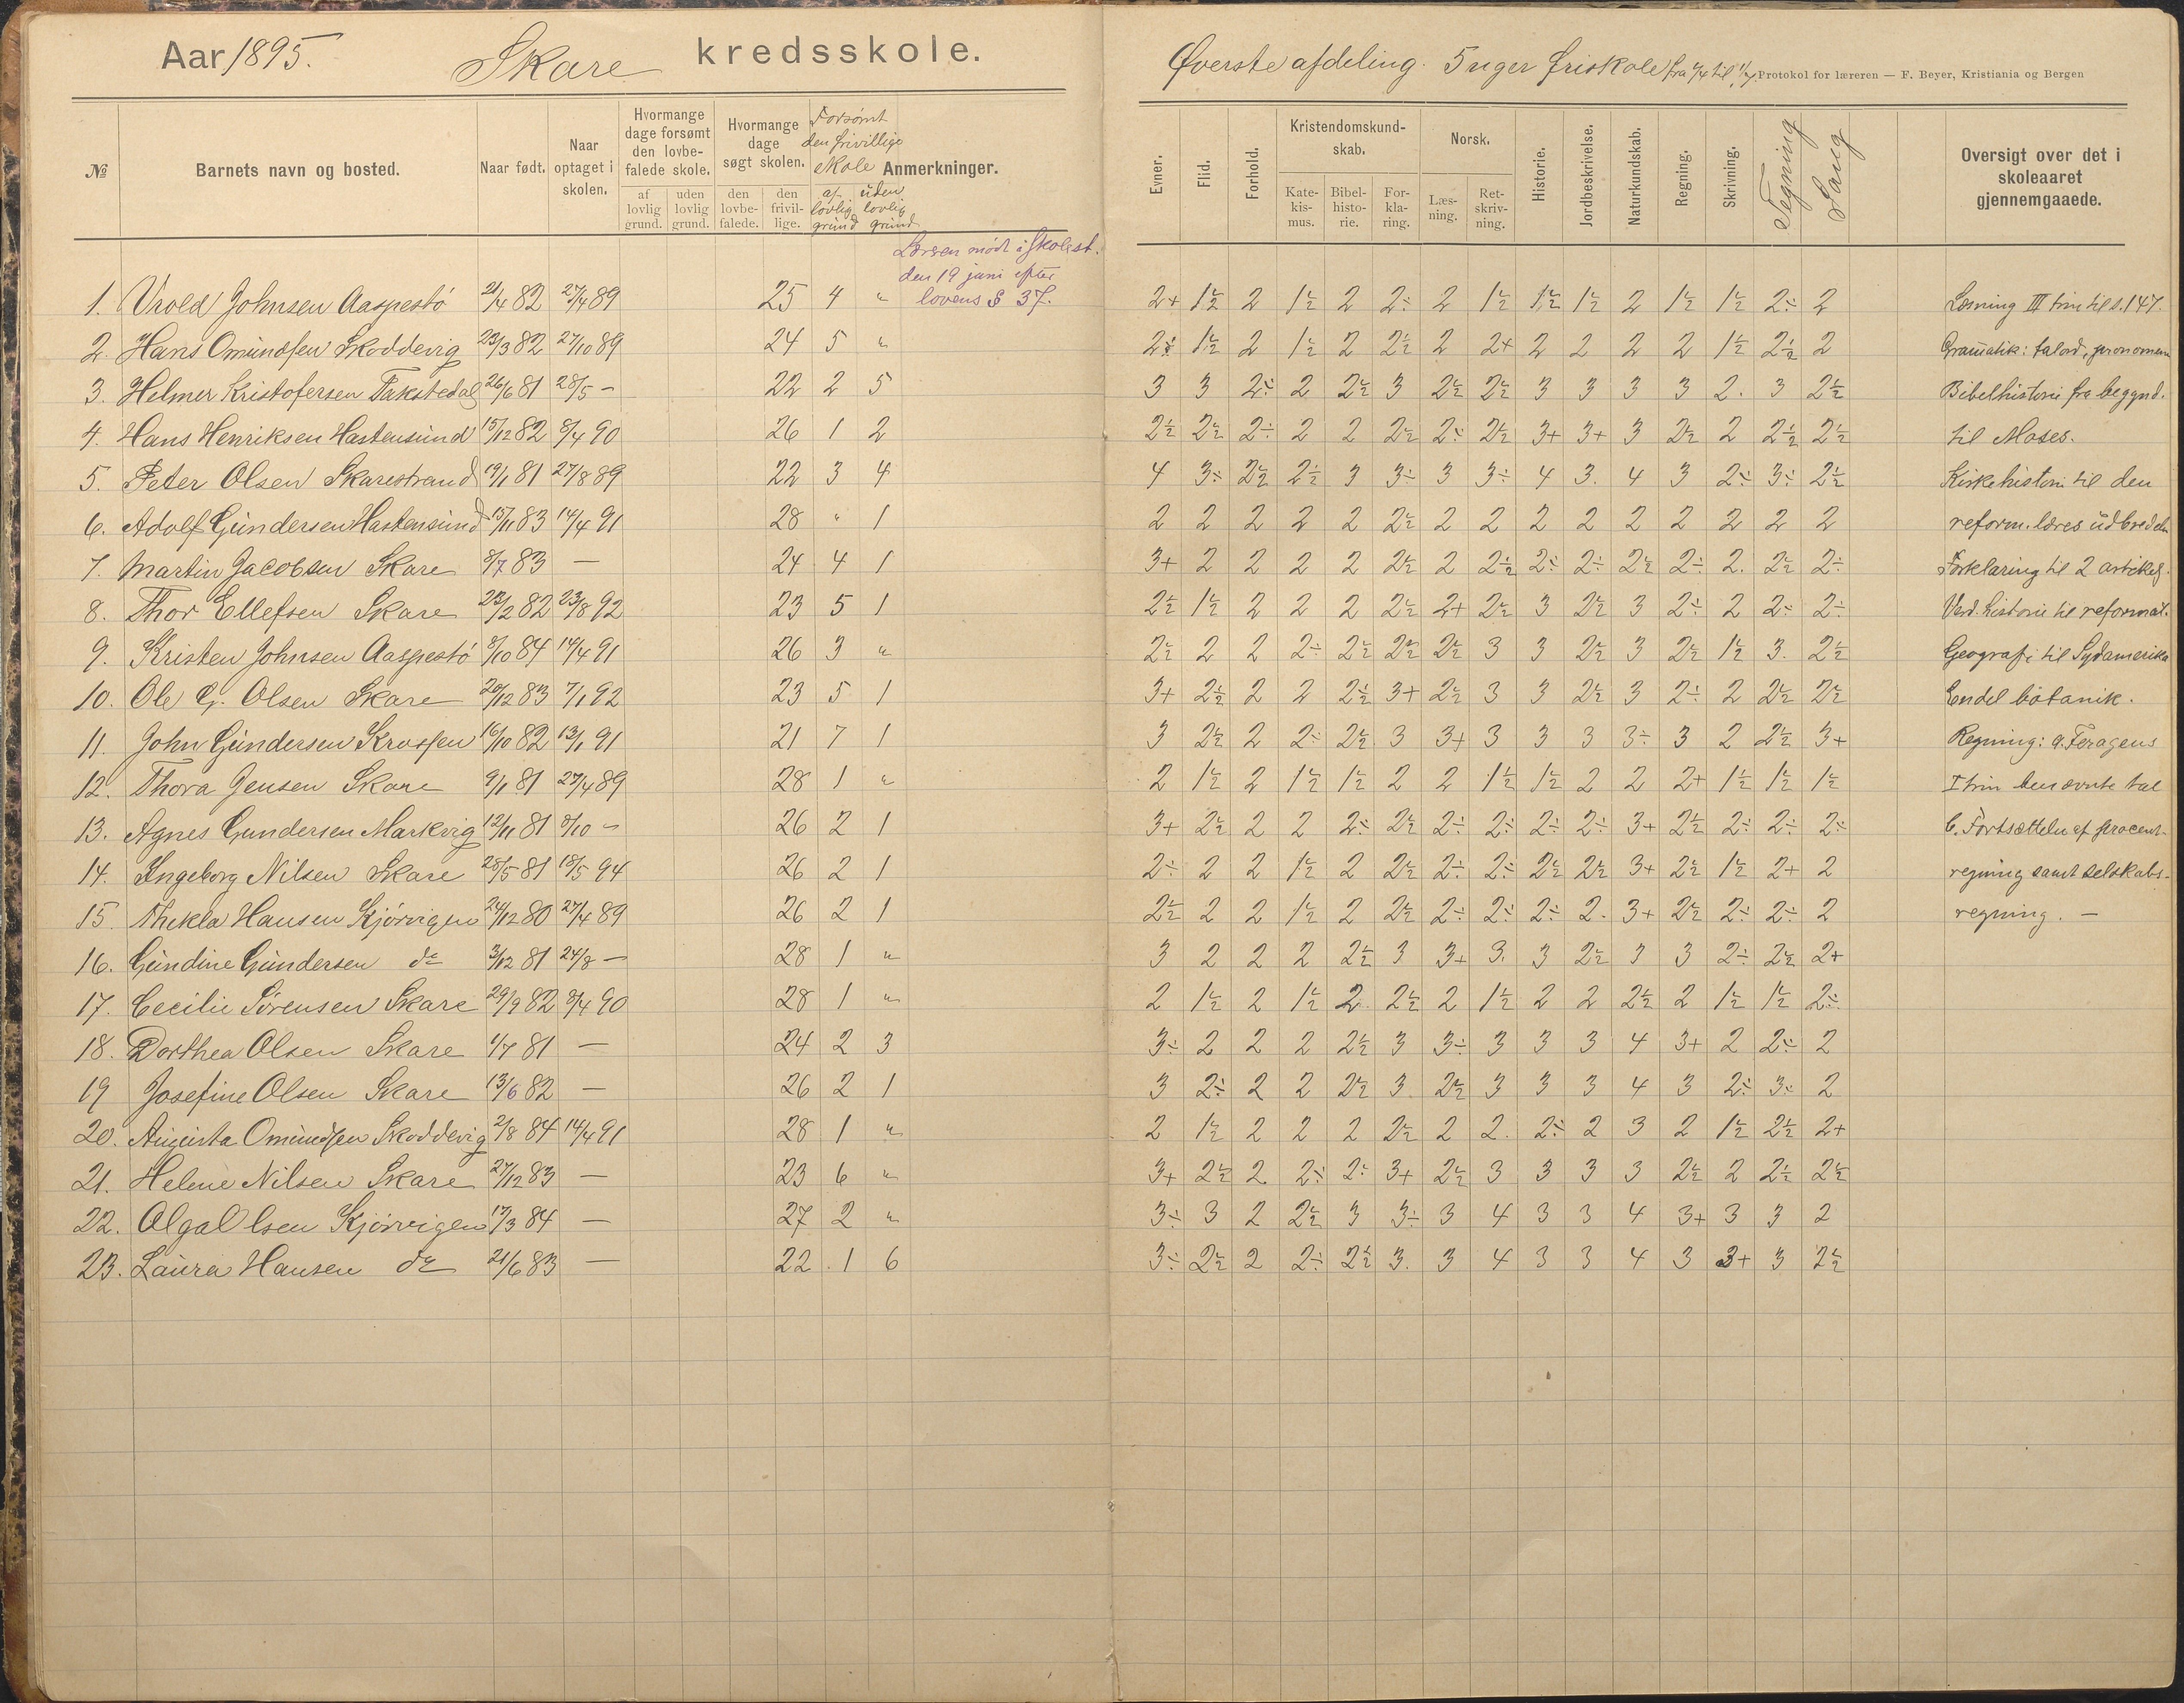 Aar 1895. Skare kredsskole. Øverste afdeling. 5 uger friskole fra til Protokol for læreren — F. Beyer, Kristiania og Bergen
№ Barnets navn og bosted. Naar født. Naar optaget i skolen. Hvormange dage forsømt den lovbefalede skole. Hvormange dage søgt skolen. Forsømt den frivillige skole Anmerkninger.
af lovlig grund. uden lovlig grund. den lovbefalede. den frivillige. af lovlig grund uden lovlig grund
Evner. Flid. Forhold. Kristendomskundskab. Norsk. Historie. Jordbeskrivelse. Naturkundskab. Regning. Skrivning. Tegning Sang Oversigt over det i skoleaaret gjennemgaaede.
Katekismus. Bibelhistorie. Forklaring. Læsning. Retskrivning.
mødt i skolest.
den 19 juni efter
lovens § 37.
1. Vrold Johnsen Aaspestø 21/4 82 27/4 89 25 4 " 2+ 1½ 2 1½ 2 2÷ 2 1½ 1½ 1½ 2 1½ 1½ 2÷ 2 Læsning III trin til s. 147.
2. Hans Omundsen Skoddevig 23/3 82 27/10 89 24 5 " 2÷ 1½ 2 1½ 2 2½ 2 2+ 2 2 2 2 1½ 2½ 2 Gramatik: talord, pronomen
3. Helmer Kristofersen 26/6 81 28/5 — 22 2 5 3 3 2÷ 2 2½ 3 2½ 2½ 3 3 3 3 2. 3 2½ Bibelhistorie fra begynd.
4. Hans Henriksen Hastensund 15/12 82 8/4 90 26 1 2 2½ 2½ 2÷ 2 2 2½ 2÷ 2½ 3+ 3+ 3 2½ 2 2½ 2½ til Moses.
5. Peter Olsen Skarestrand 19/1 81 27/8 89 22 3 4 4 3÷ 2½ 2½ 3 3÷ 3 3÷ 4 3. 4 3 2÷ 3÷ 2½ Kirkehistori til den
6. Adolf Gundersen Hastensund 15/11 83 14/4 91 28 " 1 2 2 2 2 2 2½ 2 2 2 2 2 2 2 2 2 reform. læres udbredels
7. Martin Jacobsen Skare 8/7 83 — 24 4 1 3+ 2 2 2 2 2½ 2 2½ 2÷ 2÷ 2½ 2÷ 2. 2½ 2÷ Forklaring til 2 artikel.
8. Thor Ellefsen Skare 23/2 82 23/8 92 23 5 1 2½ 1½ 2 2 2 2½ 2+ 2½ 3 2½ 3 2÷ 2 2÷ 2÷ Verd. historie til reformat.
9. Kristen Johnsen Aaspestø 8/10 84 14/4 91 26 3 " 2½ 2 2 2÷ 2½ 2½ 2½ 3 3 2½ 3 2½ 1½ 3. 2½ Geografi til Sydamerika
10. Ole G. Olsen Skare 28/12 83 7/1 92 23 5 1 3+ 2½ 2 2 2½ 3+ 2½ 3 3 2½ 3 2÷ 2 2½ 2½ Endel botanik.
11. John Gundersen Krossen 16/10 82 13/1 91 21 7 1 3 2½ 2 2÷ 2½ 3 3+ 3 3 3 3÷ 3 2 2½ 3+ Regning: a. Feragens
12. Thora Jensen Skare 9/1 81 27/4 89 28 1 " 2 1½ 2 1½ 1½ 2 2 1½ 1½ 2 2 2+ 1½ 1½ 1½ I trin benævnte tal
13. Agnes Gundersen Markvig 12/11 81 8/10 — 26 2 1 3+ 2½ 2 2 2÷ 2½ 2÷ 2÷ 2÷ 2÷ 3+ 2½ 2÷ 2÷ 2÷ C. Fortsættelse af procent-
14. Ingeborg Nilsen Skare 28/5 81 18/5 94 26 2 1 2÷ 2 2 1½ 2 2½ 2÷ 2÷ 2½ 2½ 3+ 2½ 1½ 2+ 2 regning samt selskabs-
15. Thekla Hansen Kjørvigen 24/12 80 27/4 89 26 2 1 2½ 2 2 1½ 2 2½ 2÷ 2÷ 2÷ 2. 3+ 2½ 2÷ 2÷ 2 regning. —
16. Gundine Gundersen do 3/12 81 24/8 — 28 1 " 3 2 2 2 2½ 3 3+ 3. 3 2½ 3 3 2÷ 2½ 2+
17. Cecilie Sørensen Skare 29/9 82 8/4 90 28 1 " 2 1½ 2 1½ 2 2½ 2 1½ 2 2 2½ 2 1½ 1½ 2÷
18. Dorthea Olsen Skare 1/7 81 — 24 2 3 3÷ 2 2 2 2½ 3 3÷ 3 3 3 4 3+ 2 2÷ 2
19 Josefine Olsen Skare 13/6 82 — 26 2 1 3 2÷ 2 2 2½ 3. 2½ 3 3 3 4 3 2÷ 3÷ 2
20. Augusta Omundsen Skoddevig 2/8 84 14/4 91 28 1 " 2 1½ 2 2 2 2½ 2 2. 2÷ 2 3 2 1½ 2½ 2+
21. Helene Nilsen Skare 27/12 83 — 23 6 " 3+ 2½ 2 2÷ 2÷ 3+ 2½ 3 3 3 3 2½ 2 2½ 2½
22. Olga Olsen Kjørvigen 17/3 84 — 27 2 " 3÷ 3 2 2½ 3 3÷ 3 4 3 3 4 3+ 3 3 2
23. Laura Hansen do 21/6 83 — 22 1 6 3÷ 2½ 2 2÷ 2½ 3. 3 4 3 3 4 3 3+ 3 2½